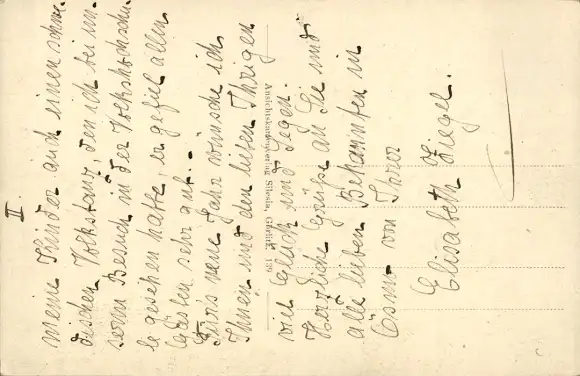 II.
meine Kinder auch einen schwe-
dischen Volkstanz, den ich bei un-
serm Besuch in der Volkshochschu-
le gesehen hatte, er gefiel allen
Gästen sehr gut. -
Fürs neue Jahr wünsche ich
Ihnen und den lieben Ihrigen
viel Glück und Segen.
Herzliche Grüße an Sie und
alle lieben Bekannten in
von Ihrer
Elisabeth Ziegel.
Ansichtskartenverlag Silesia, Görlitz. 139